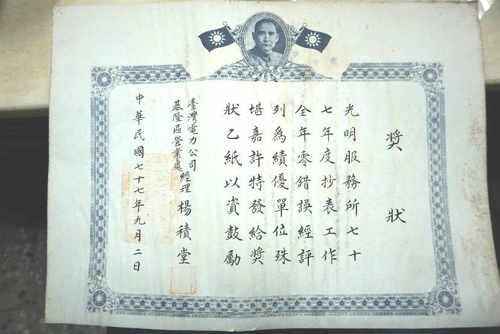 獎狀
光明服務所七十
七年度抄表工作
全年零錯誤經評
列為績優單位殊
堪嘉許特發給獎
狀乙紙以資鼓勵
臺灣電力公司
基隆區營業處經理 楊積堂
中華民國七十七年九月二日